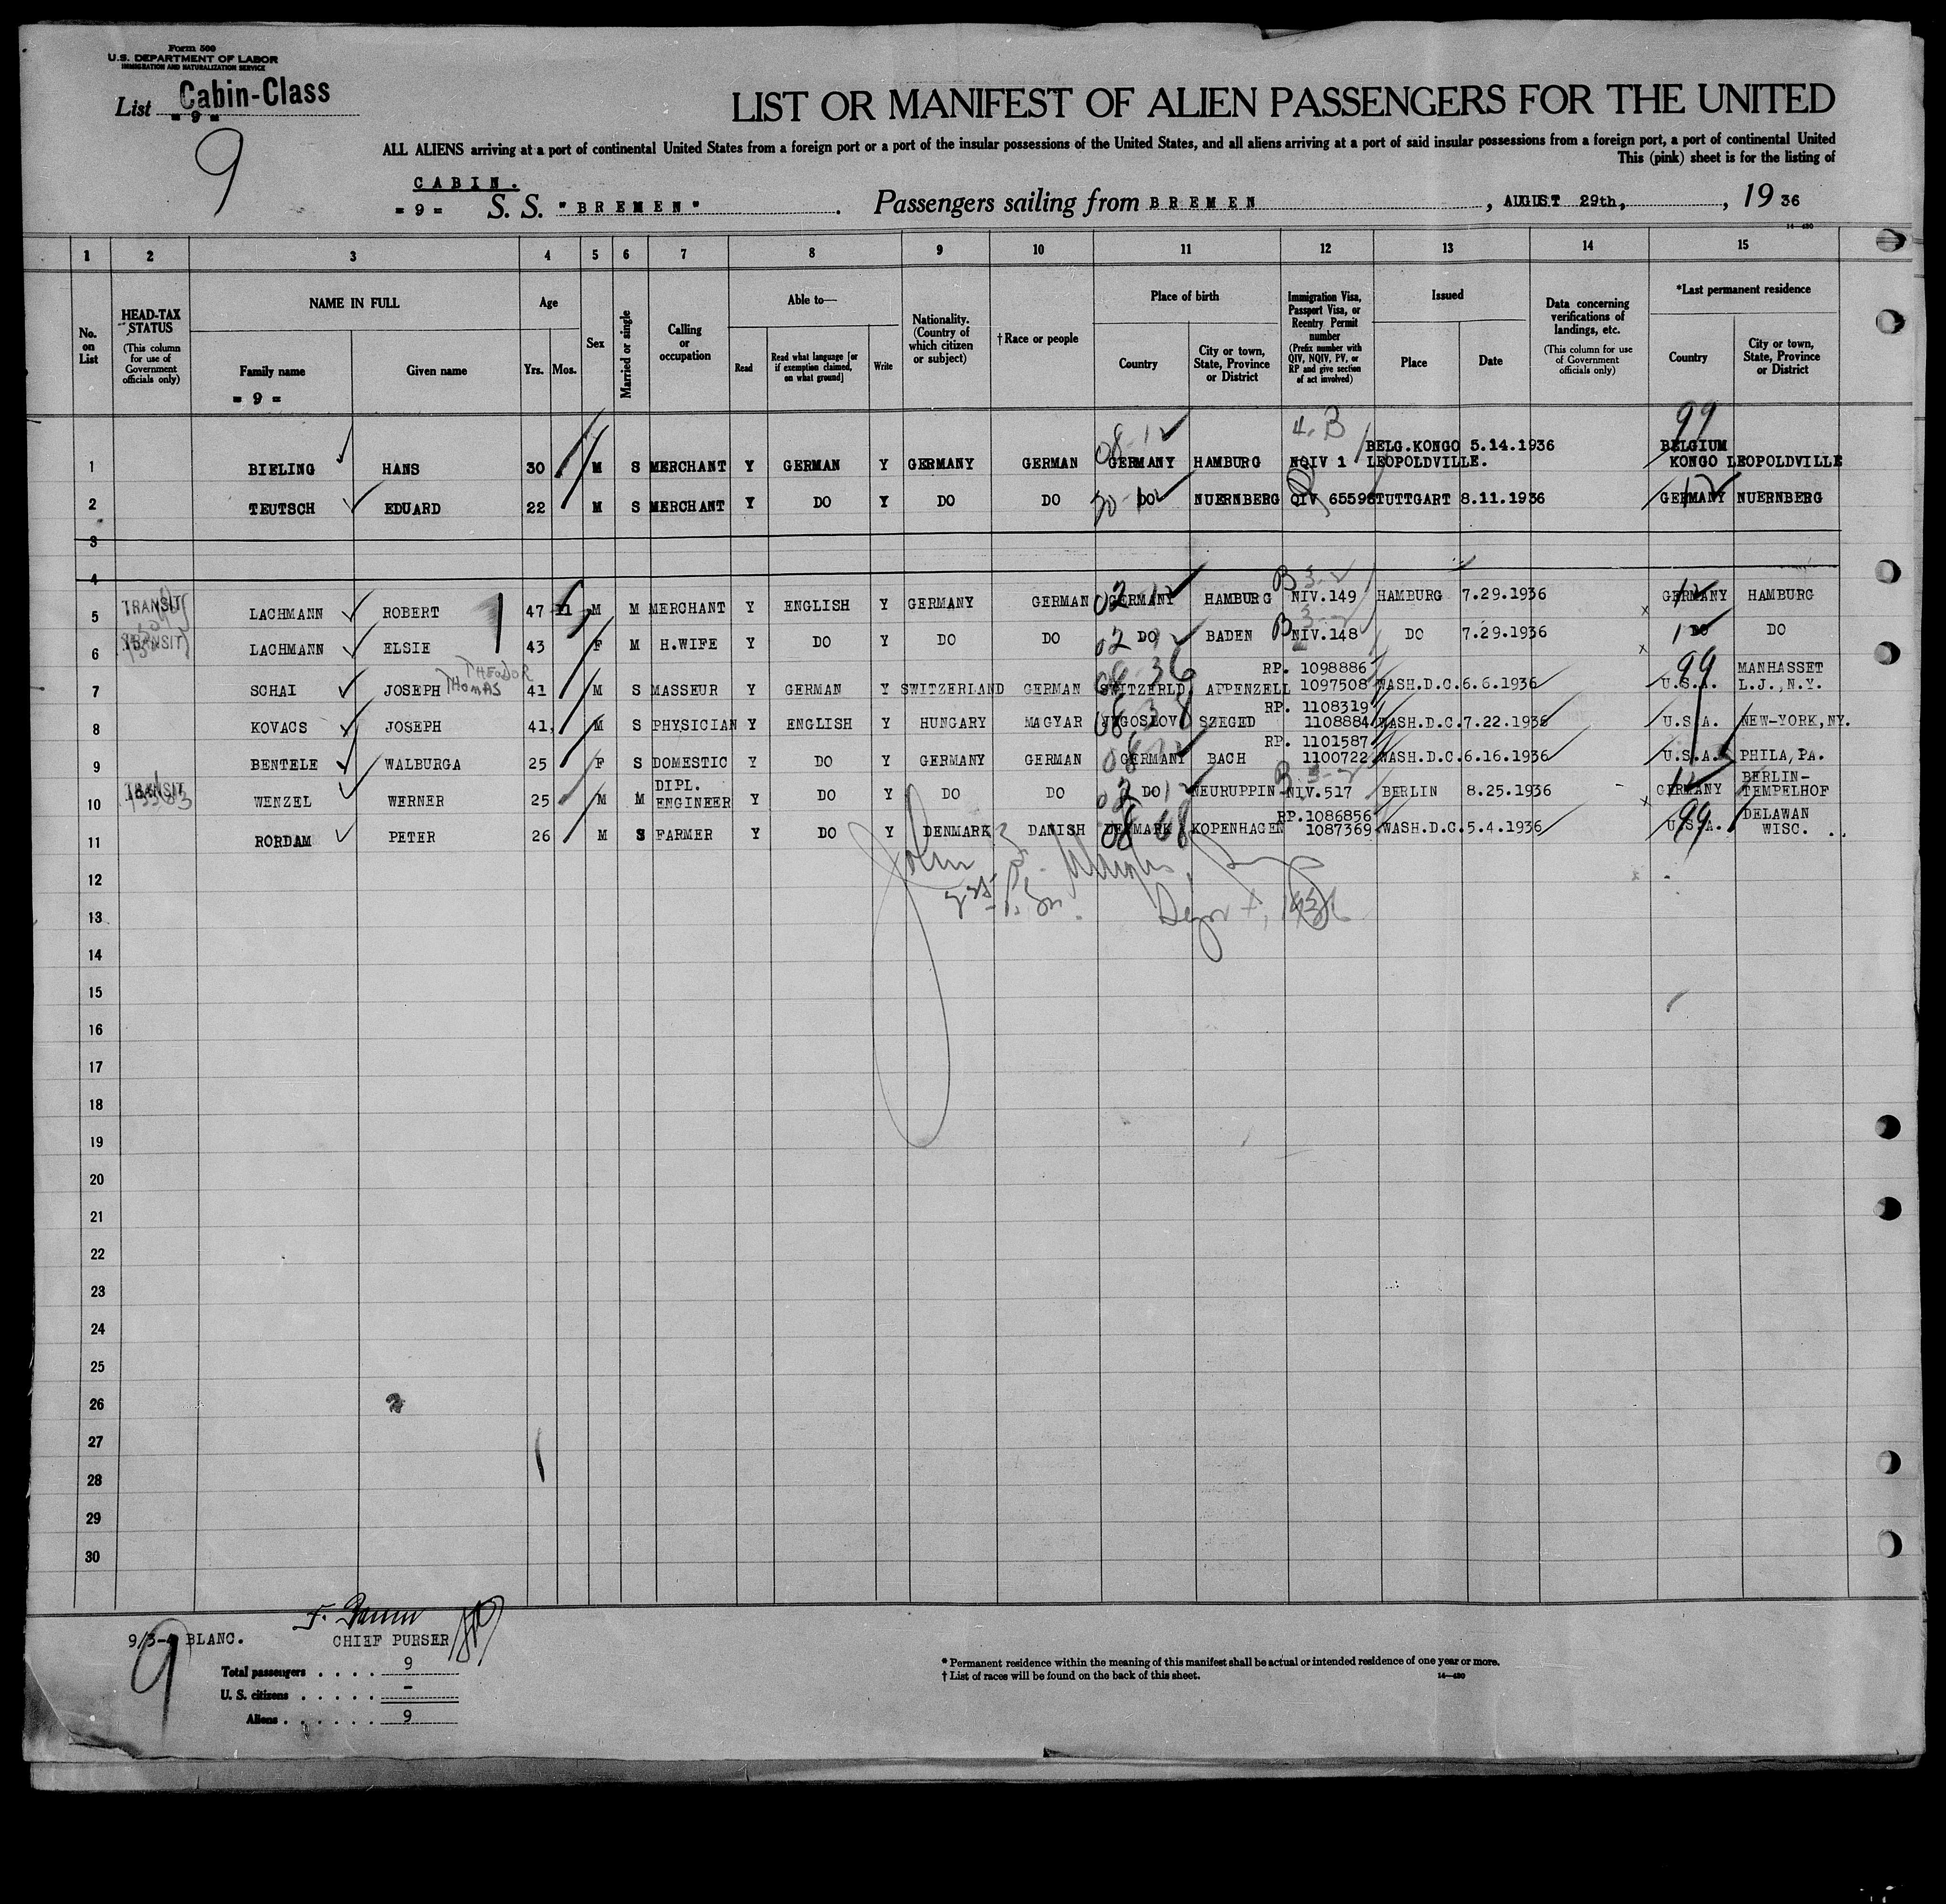 Form 500
U.S. DEPARTMENT OF LABOR
IMMIGRATION AND NATURALIZATION SERVICE
List Cabin-Class
= 9 =
9
LIST OR MANIFEST OF ALIEN PASSENGERS FOR THE UNITED
ALL ALIENS arriving at a port of continental United States from a foreign port or a port of the insular possessions of the United States, and all aliens arriving at a port of said insular possessions from a foreign port, a port of continental United
This (pink) sheet is for the listing of
CABIN.
= 9 = S. S. "BREMEN". Passengers sailing from BREMEN, AUGUST 29th, , 19 36
14—430
1 2 3 4 5 6 7 8 9 10 11 12 13 14 15
No. on List
HEAD-TAX STATUS
(This column for use of Government officials only)
NAME IN FULL
Family name
= 9 =
Given name
Age
Yrs. Mos.
Sex
Married or single
Calling or occupation
Able to—
Read
Read what language [or if exemption claimed, on what ground]
Write
Nationality. (Country of which citizen or subject)
† Race or people
Place of birth
Country
City or town, State, Province or District
Immigration Visa, Passport Visa, or Reentry Permit number
(Prefix number with QIV, NQIV, PV, or RP and give section of act involved)
Issued
Place
Date
Data concerning verifications of landings, etc.
(This column for use of Government officials only)
*Last permanent residence
Country
City or town, State, Province or District
08-12 4. B 99
BELG.KONGO 5.14.1936 BELGIUM
1 BIELING HANS 30 M S MERCHANT Y GERMAN Y GERMANY GERMAN GERMANY HAMBURG NQIV 1 LEOPOLDVILLE. KONGO LEOPOLDVILLE
2 TEUTSCH EDUARD 22 M S MERCHANT Y DO Y DO DO DO NUERNBERG QIV 6559 STUTTGART 8.11.1936 GERMANY NUERNBERG
3
4
5 TRANSIT LACHMANN ROBERT 47 11 M M MERCHANT Y ENGLISH Y GERMANY GERMAN GERMANY HAMBURG NIV.149 HAMBURG 7.29.1936 GERMANY HAMBURG
6 TRANSIT LACHMANN ELSIE 43 F M H.WIFE Y DO Y DO DO DO BADEN NIV.148 DO 7.29.1936 DO DO
THEODOR RP. 1098886 99 MANHASSET
7 SCHAI JOSEPH THOMAS 41 M S MASSEUR Y GERMAN Y SWITZERLAND GERMAN SWITZERLD APPENZELL 1097508 WASH.D.C. 6.6.1936 U.S.A. L.J., N.Y.
RP. 1108319
8 KOVACS JOSEPH 41 M S PHYSICIAN Y ENGLISH Y HUNGARY MAGYAR JUGOSLOV SZEGED 1108884 WASH.D.C. 7.22.1936 U.S.A. NEW-YORK, NY.
RP. 1101587
9 BENTELE WALBURGA 25 F S DOMESTIC Y DO Y GERMANY GERMAN GERMANY BACH 1100722 WASH.D.C. 6.16.1936 U.S.A. PHILA, PA.
TRANSIT DIPL. BERLIN-
10 WENZEL WERNER 25 M M ENGINEER Y DO Y DO DO DO NEURUPPIN NIV.517 BERLIN 8.25.1936 GERMANY TEMPELHOF
RP.1086856 DELAWAN
11 RORDAM PETER 26 M S FARMER Y DO Y DENMARK DANISH DENMARK KOPENHAGEN 1087369 WASH.D.C. 5.4.1936 U.S.A. WISC.
12
13
14
15
16
17
18
19
20
21
22
23
24
25
26
27
28
29
30
9/3- BLANC.
CHIEF PURSER
9
Total passengers . . . . 9
U. S. citizens . . . . . -
Aliens . . . . . . 9
* Permanent residence within the meaning of this manifest shall be actual or intended residence of one year or more.
† List of races will be found on the back of this sheet.
14—430